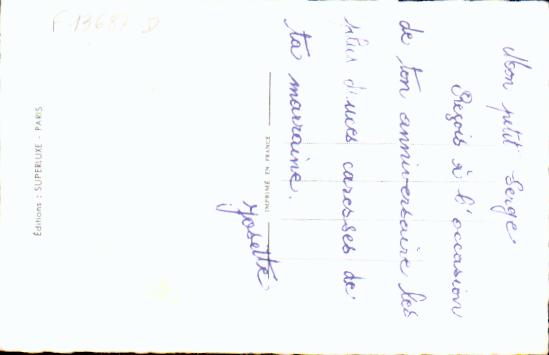 Mon petit Serge
Reçois à l'occasion
de ton anniversaire les
plus douces caresses de
ta marraine.
Josette
IMPRIMÉ EN FRANCE
Éditions : SUPERLUXE - PARIS
F-13687 D